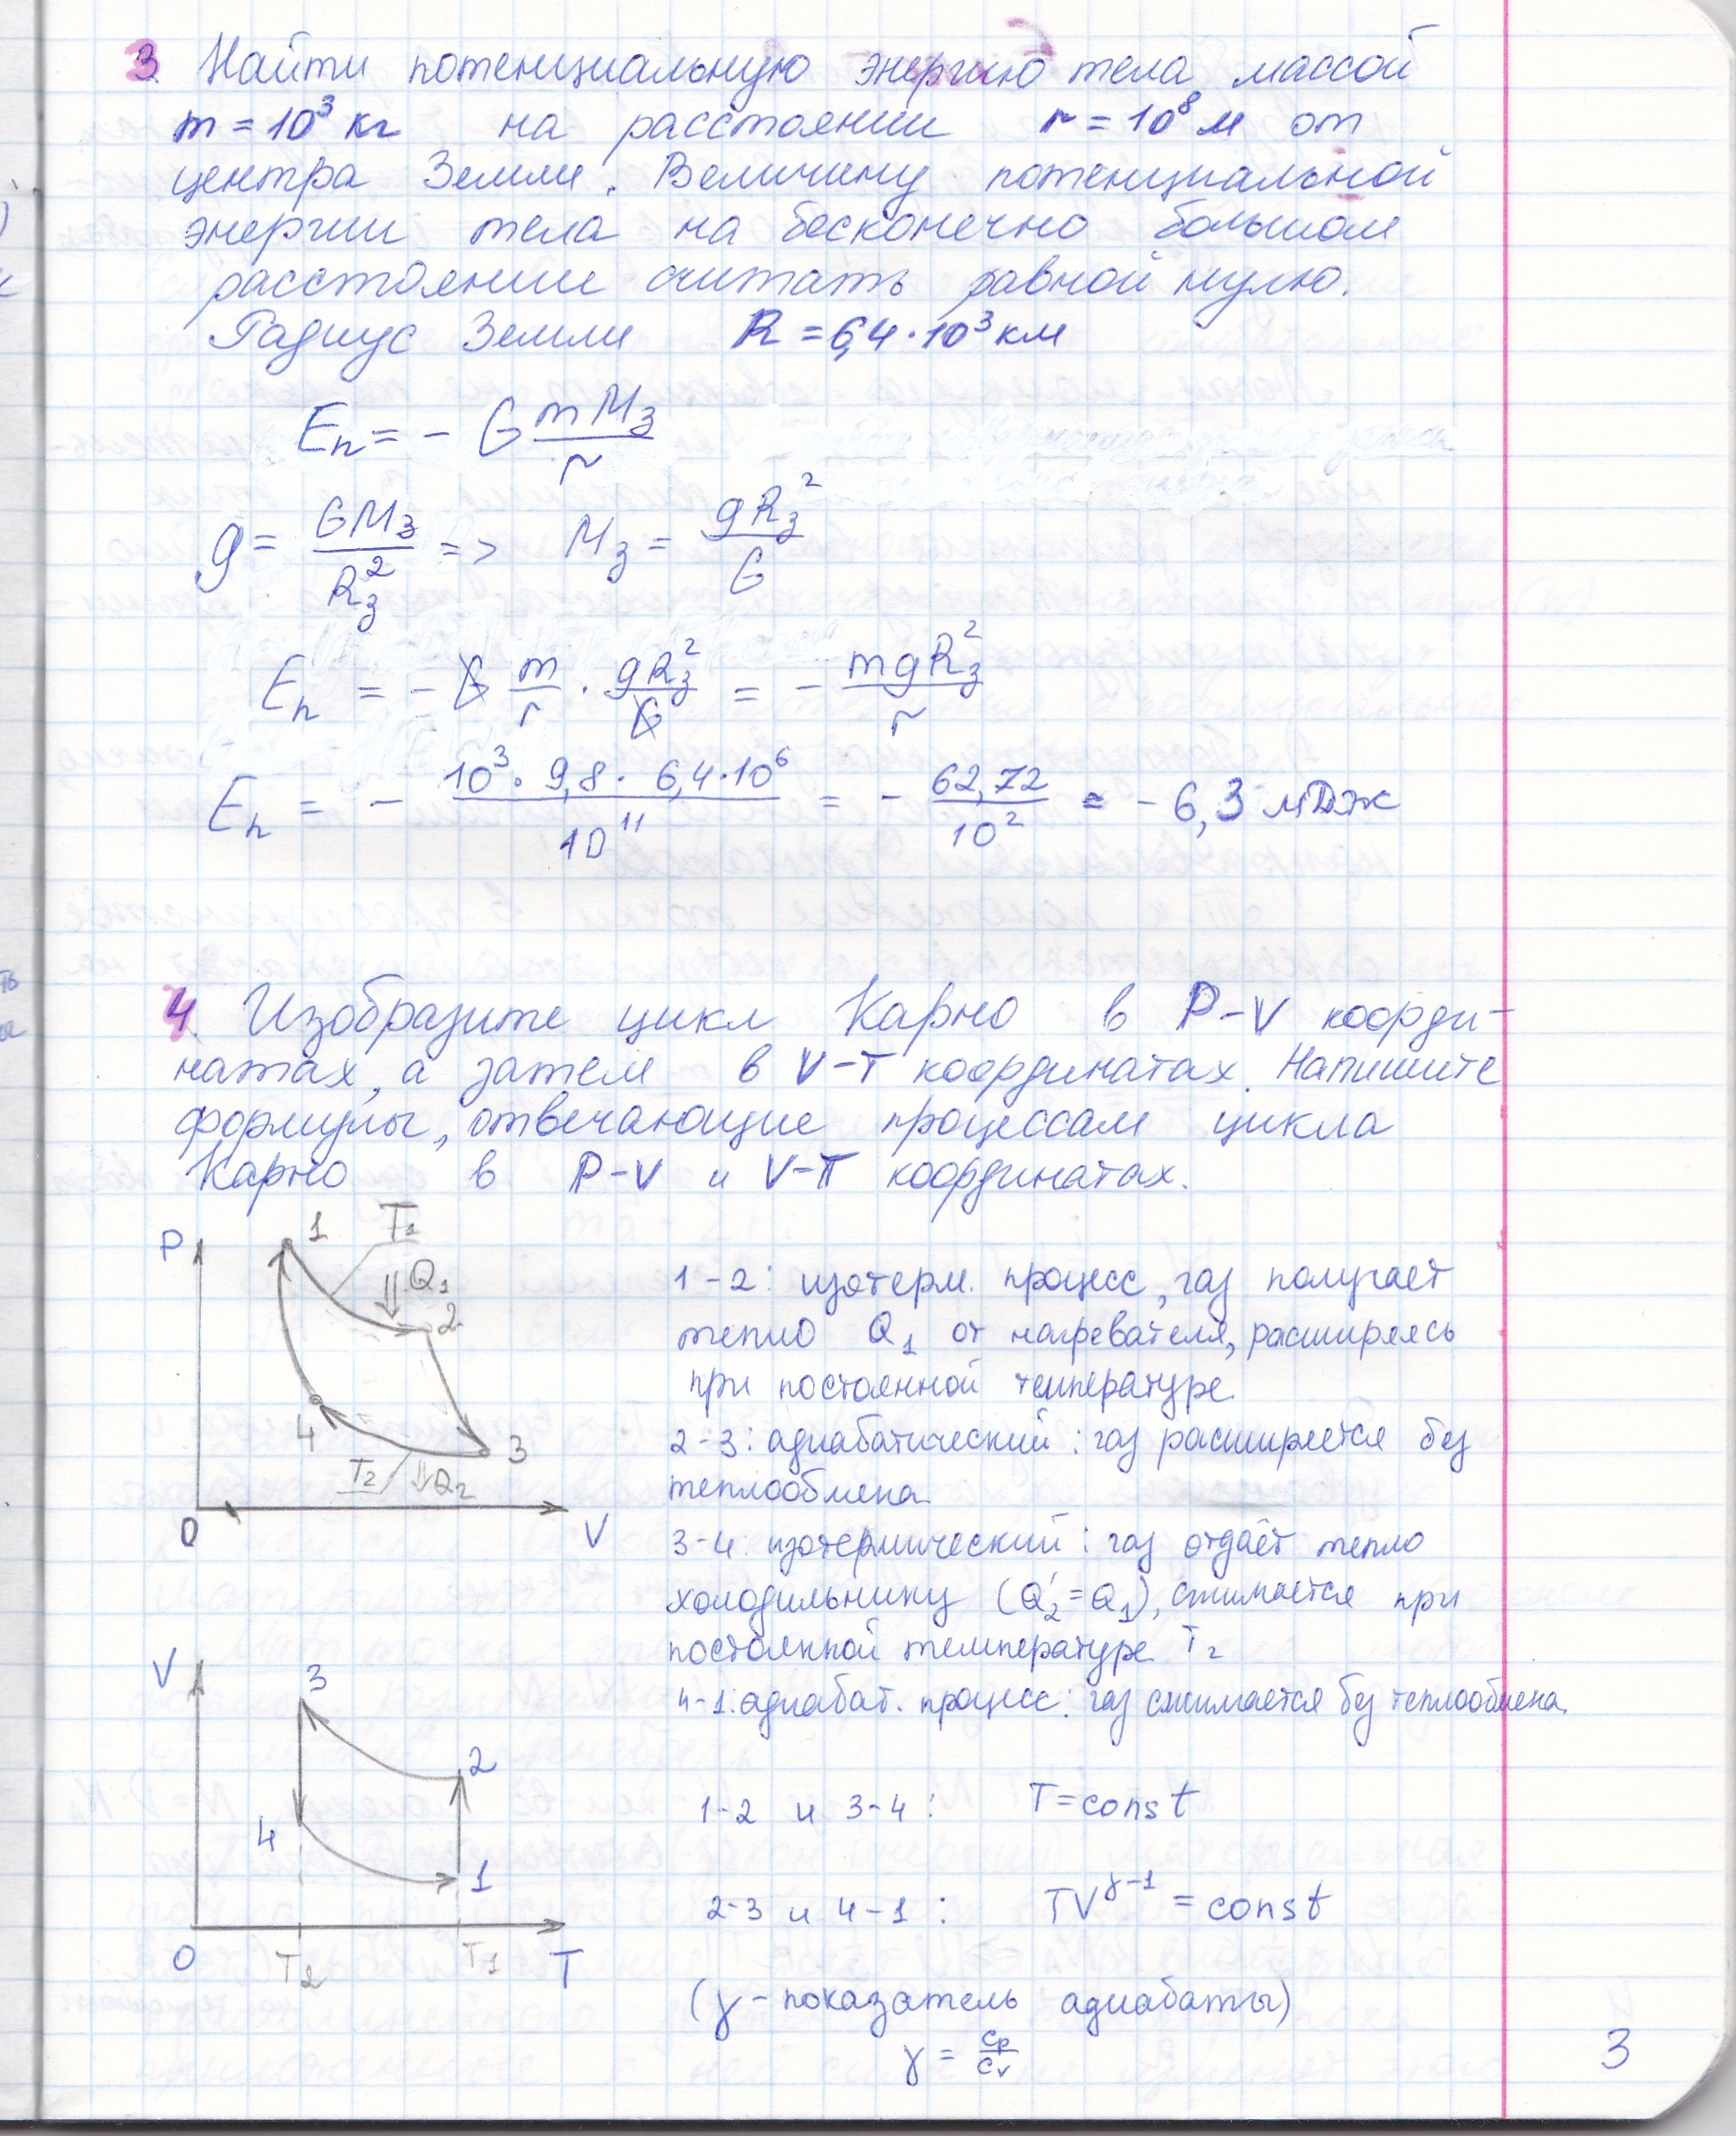 3. Найти потенциальную энергию тела массой
m = 10³ кг на расстоянии r = 10⁸ м от
центра Земли. Величину потенциальной
энергии тела на бесконечно большом
расстоянии считать равной нулю.
Радиус Земли R = 6,4·10³ км
Eп = - G mMз/r
g = GMз/Rз² => Mз = gRз²/G
Eп = - G m/r · gRз²/G = - mgRз²/r
Eп = - 10³ · 9,8 · 6,4·10⁶/10¹¹ = - 62,72/10² = - 6,3 мДж
4. Изобразите цикл Карно в P-V коорди-
натах, а затем в V-T координатах. Напишите
формулы, отвечающие процессам цикла
Карно в P-V и V-T координатах.
P 1 T₁
Q₁
2
4 3
T₂ Q₂
0 V
1-2: изотерм. процесс, газ получает
тепло Q₁ от нагревателя, расширяясь
при постоянной температуре.
2-3: адиабатический: газ расширяется без
теплообмена.
3-4: изотермический: газ отдаёт тепло
холодильнику (Q₂' = Q₁), сжимается при
постоянной температуре T₂
4-1: адиабат. процесс: газ сжимается без теплообмена.
V 3
2
4
1
0 T₂ T₁ T
1-2 и 3-4: T = const
2-3 и 4-1: TV^γ-1 = const
(γ - показатель адиабаты)
γ = Cp/Cv
3